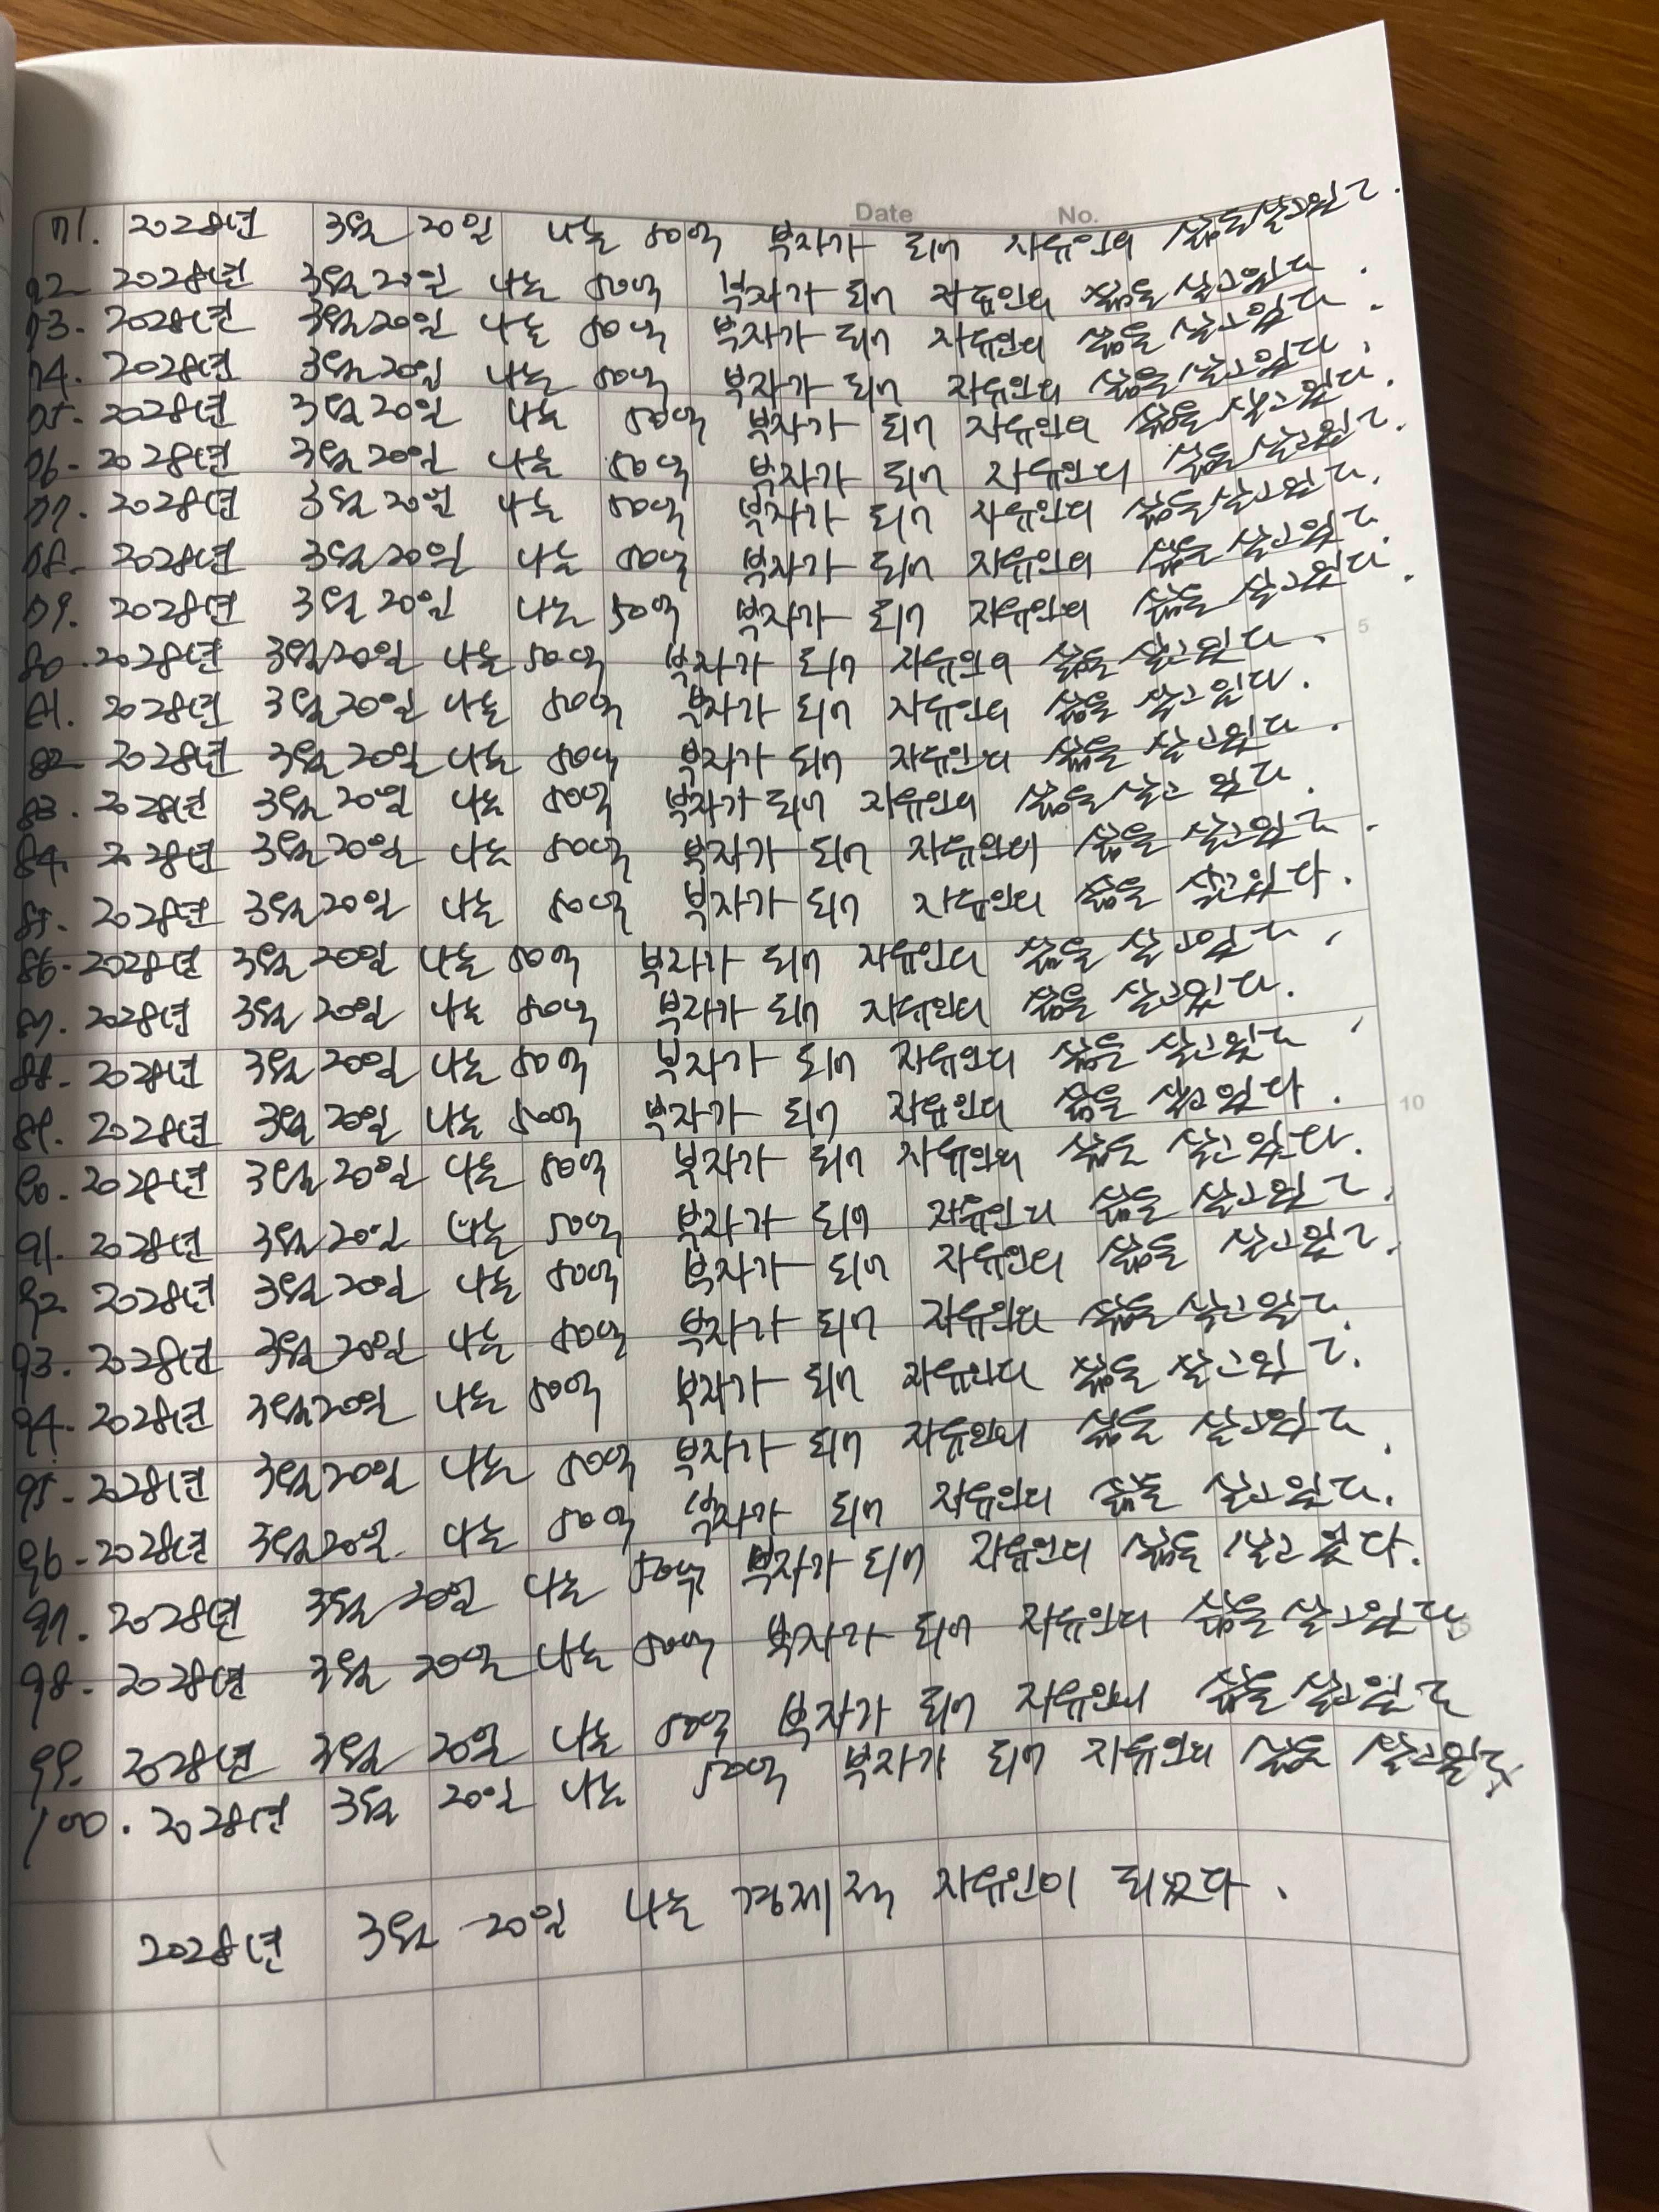 Date No.
71. 2028년 3월 20일 나는 50억 부자가 되어 자유인의 삶을 살고있다.
72. 2028년 3월 20일 나는 50억 부자가 되어 자유인의 삶을 살고있다.
73. 2028년 3월 20일 나는 50억 부자가 되어 자유인의 삶을 살고있다.
74. 2028년 3월 20일 나는 50억 부자가 되어 자유인의 삶을 살고있다.
75. 2028년 3월 20일 나는 50억 부자가 되어 자유인의 삶을 살고있다.
76. 2028년 3월 20일 나는 50억 부자가 되어 자유인의 삶을 살고있다.
77. 2028년 3월 20일 나는 50억 부자가 되어 자유인의 삶을 살고있다.
78. 2028년 3월 20일 나는 50억 부자가 되어 자유인의 삶을 살고있다.
79. 2028년 3월 20일 나는 50억 부자가 되어 자유인의 삶을 살고있다.
5
80. 2028년 3월 20일 나는 50억 부자가 되어 자유인의 삶을 살고있다.
81. 2028년 3월 20일 나는 50억 부자가 되어 자유인의 삶을 살고있다.
82. 2028년 3월 20일 나는 50억 부자가 되어 자유인의 삶을 살고있다.
83. 2028년 3월 20일 나는 50억 부자가 되어 자유인의 삶을 살고 있다.
84. 2028년 3월 20일 나는 50억 부자가 되어 자유인의 삶을 살고있다.
85. 2028년 3월 20일 나는 50억 부자가 되어 자유인의 삶을 살고있다.
86. 2028년 3월 20일 나는 50억 부자가 되어 자유인의 삶을 살고있다.
87. 2028년 3월 20일 나는 50억 부자가 되어 자유인의 삶을 살고있다.
88. 2028년 3월 20일 나는 50억 부자가 되어 자유인의 삶을 살고있다.
89. 2028년 3월 20일 나는 50억 부자가 되어 자유인의 삶을 살고있다.
10
90. 2028년 3월 20일 나는 50억 부자가 되어 자유인의 삶을 살고있다.
91. 2028년 3월 20일 나는 50억 부자가 되어 자유인의 삶을 살고있다.
92. 2028년 3월 20일 나는 50억 부자가 되어 자유인의 삶을 살고있다.
93. 2028년 3월 20일 나는 50억 부자가 되어 자유인의 삶을 살고있다.
94. 2028년 3월 20일 나는 50억 부자가 되어 자유인의 삶을 살고있다.
95. 2028년 3월 20일 나는 50억 부자가 되어 자유인의 삶을 살고있다.
96. 2028년 3월 20일 나는 50억 부자가 되어 자유인의 삶을 살고있다.
97. 2028년 3월 20일 나는 50억 부자가 되어 자유인의 삶을 살고 있다.
98. 2028년 3월 20일 나는 50억 부자가 되어 자유인의 삶을 살고있다
99. 2028년 3월 20일 나는 50억 부자가 되어 자유인의 삶을 살고있다
100. 2028년 3월 20일 나는 50억 부자가 되어 자유인의 삶을 살고있다
2028년 3월 20일 나는 경제적 자유인이 되었다.